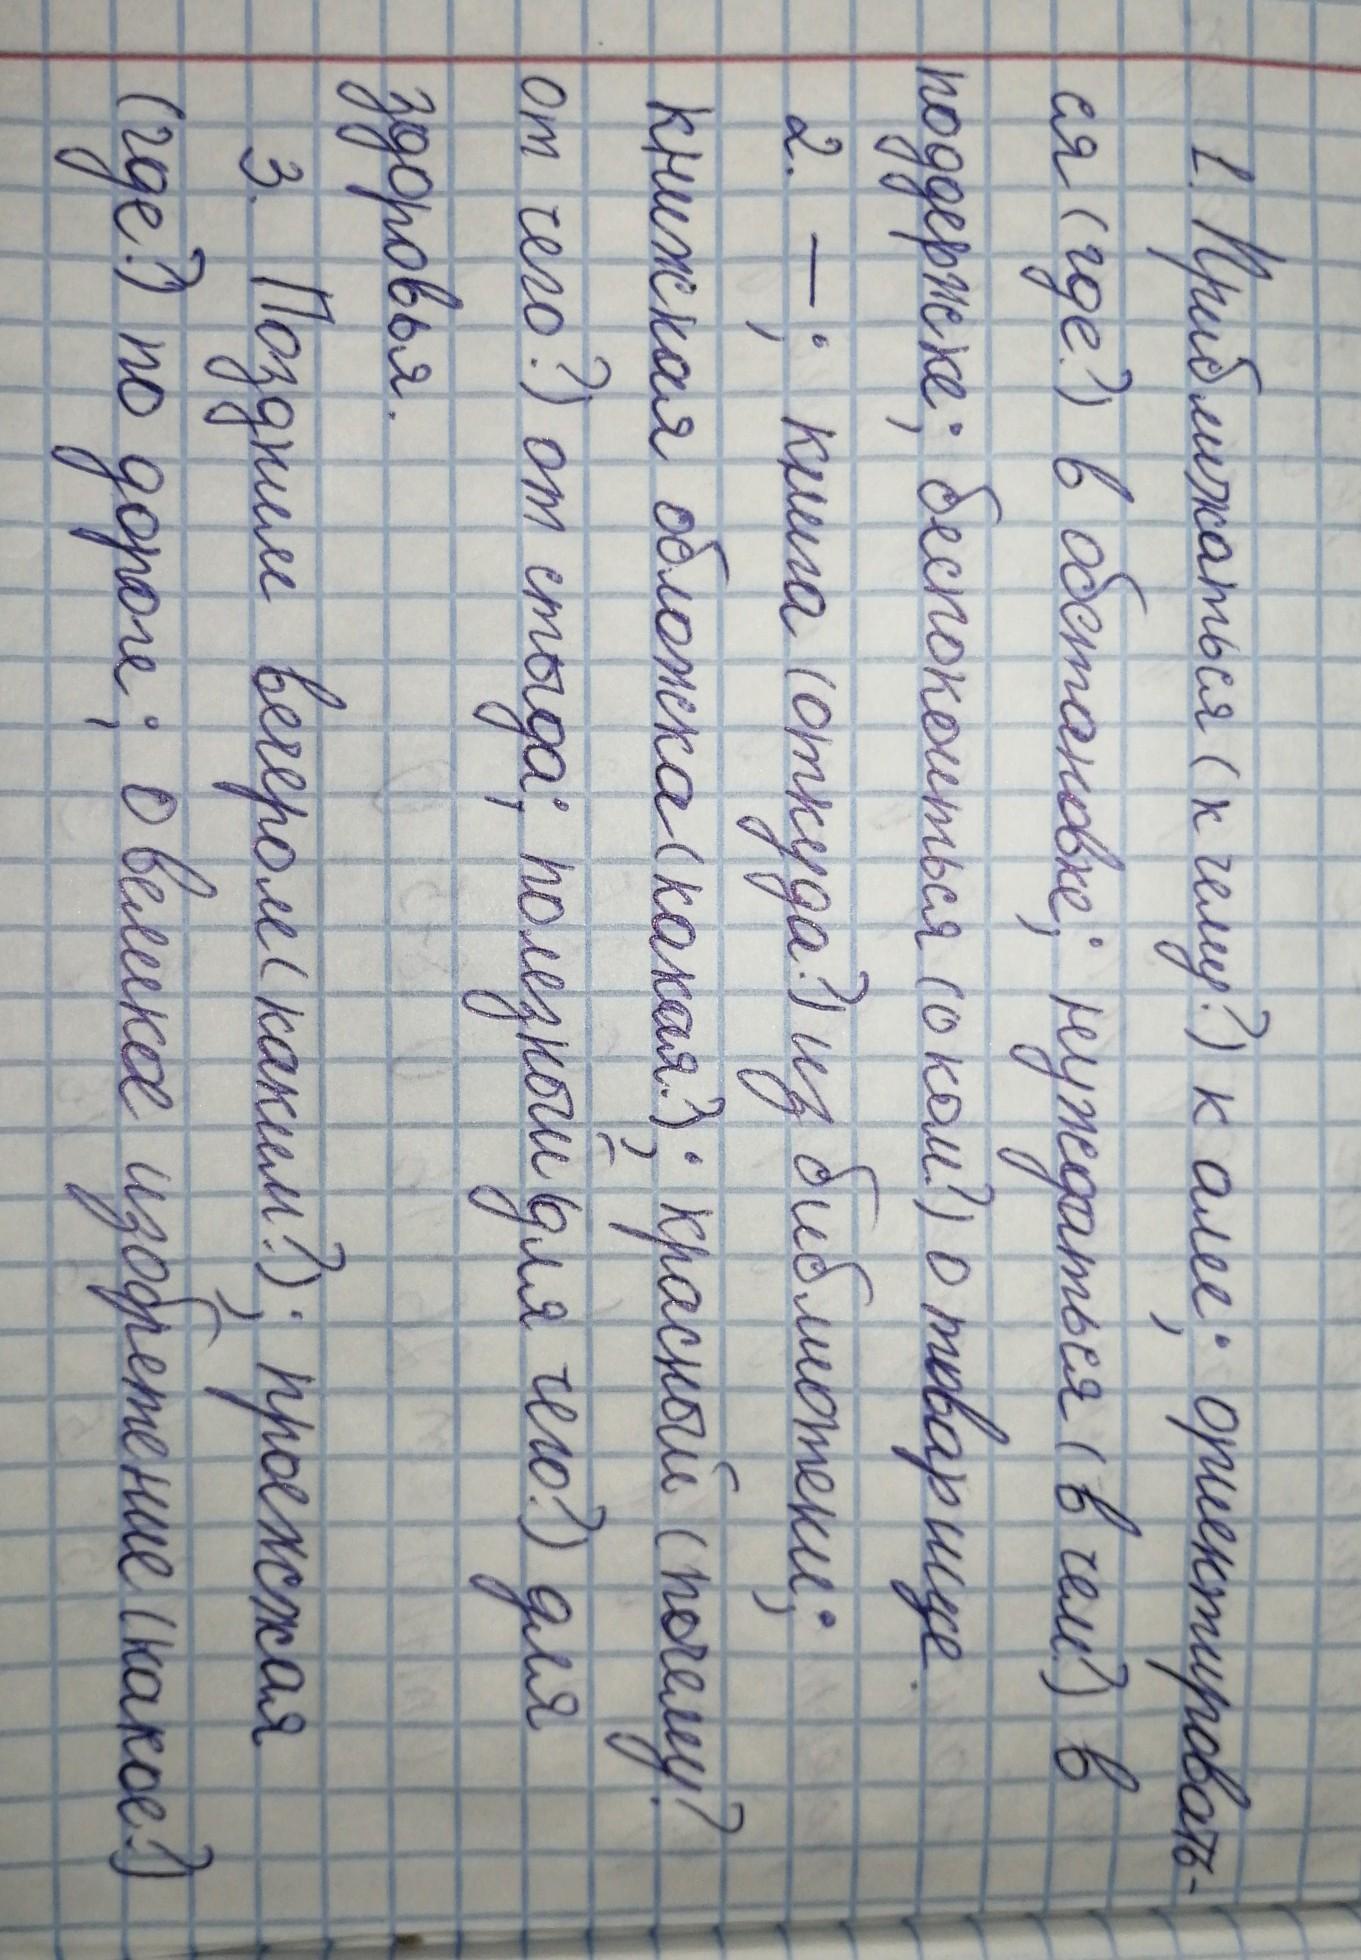 1. Приближаться (к чему?) к алее; ориентировать-
ся (где?) в обстановке; нуждаться (в чем?) в
поддержке; беспокоиться (о ком?) о товарище.
2. —; книга (откуда?) из библиотеки;
книжная обложка (какая?); красный (почему?
от чего?) от стыда; полезный (для чего?) для
здоровья.
3. Поздним вечером (каким?); проезжая
(где?) по дороге; о великое изобретение (какое?)